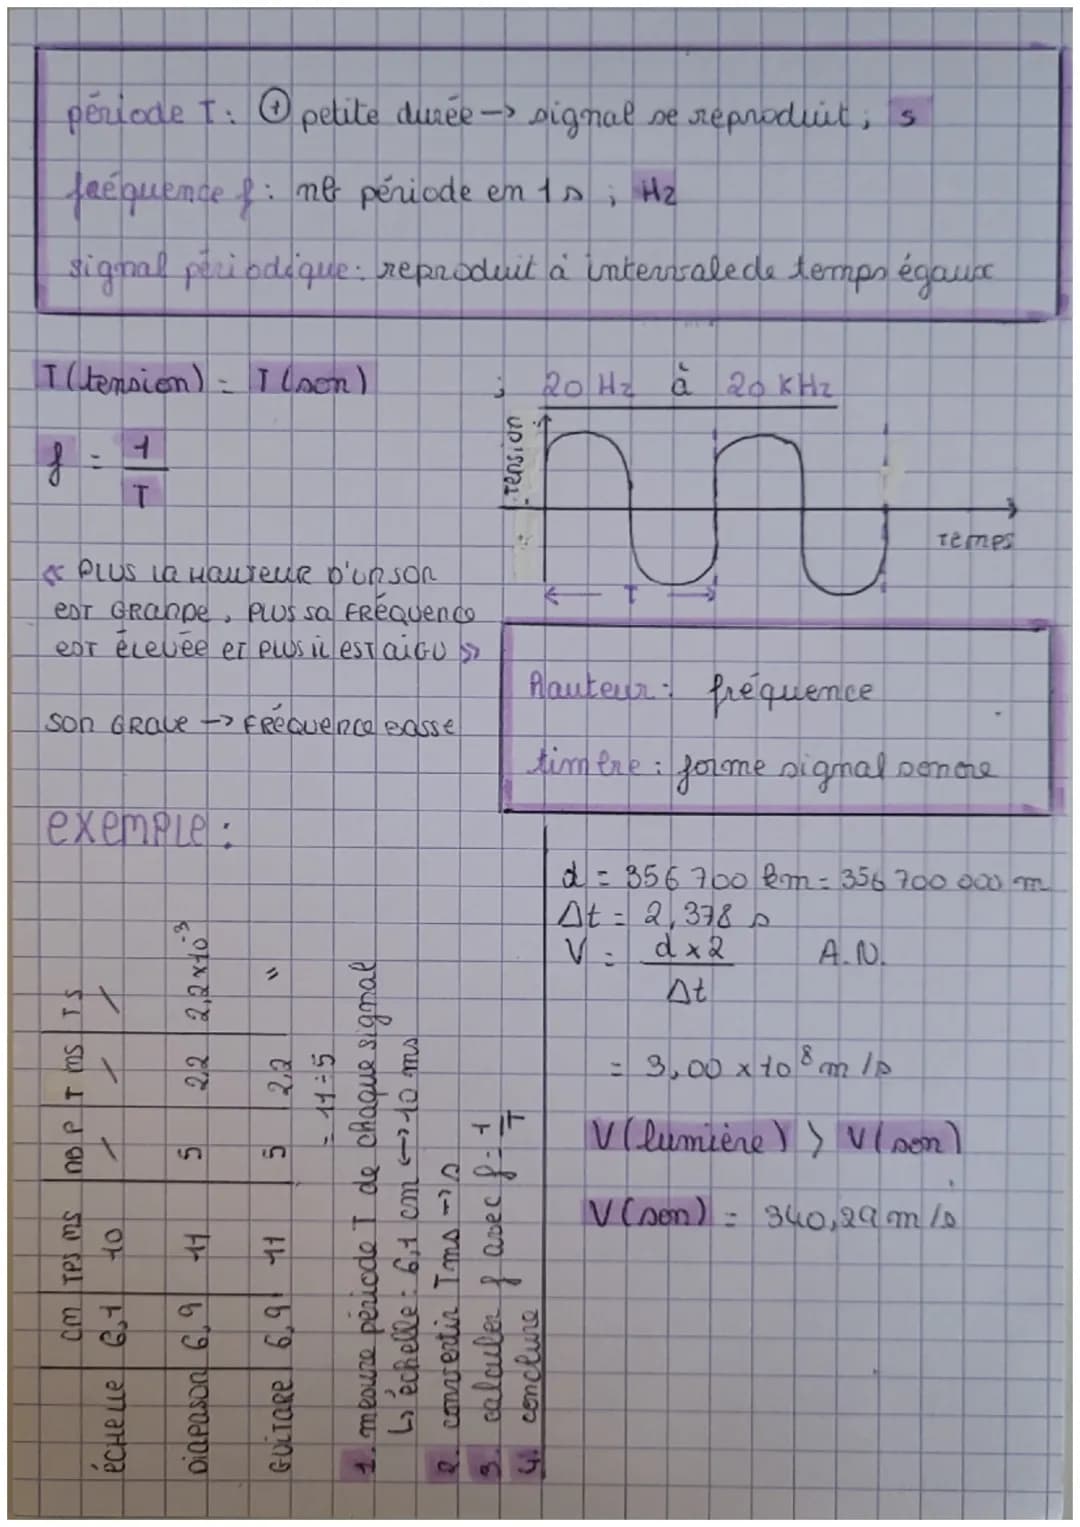 période T : ⊕ petite durée → signal se reproduit ; s
fréquence f : nb période en 1 s ; Hz
signal périodique : reproduit à intervsalede temps égaux
T (tension) = T (son) ; 20 Hz à 20 KHz
f = 1/T
tension
Temps
T
« PLUS LA HAUTEUR D'UN SON
EST GRANDE, PLUS SA FRÉQUENCE
EST ÉLEVÉE ET PLUS IL EST AIGU »
SON GRAVE → FRÉQUENCE BASSE
Hauteur : fréquence
timbre : forme signal sonore
exemple :
cm TPS ms nb P T ms T s
ÉCHELLE 6,1 10 / / /
DIAPASON 6,9 11 5 2,2 2,2 x 10⁻³
GUITARE 6,9 11 5 2,2 "
= 11 ÷ 5
1. mesure période T de chaque signal
↳ échelle : 6,1 cm ↔ 10 ms
2. convertir T ms → s
3. calculer f avec f = 1/T
4. conclure
d = 356 700 km = 356 700 000 m
Δt = 2,378 s
V = d x 2 / Δt A.N.
= 3,00 x 10⁸ m/s
V (lumière) > V (son)
V (son) = 340,29 m/s